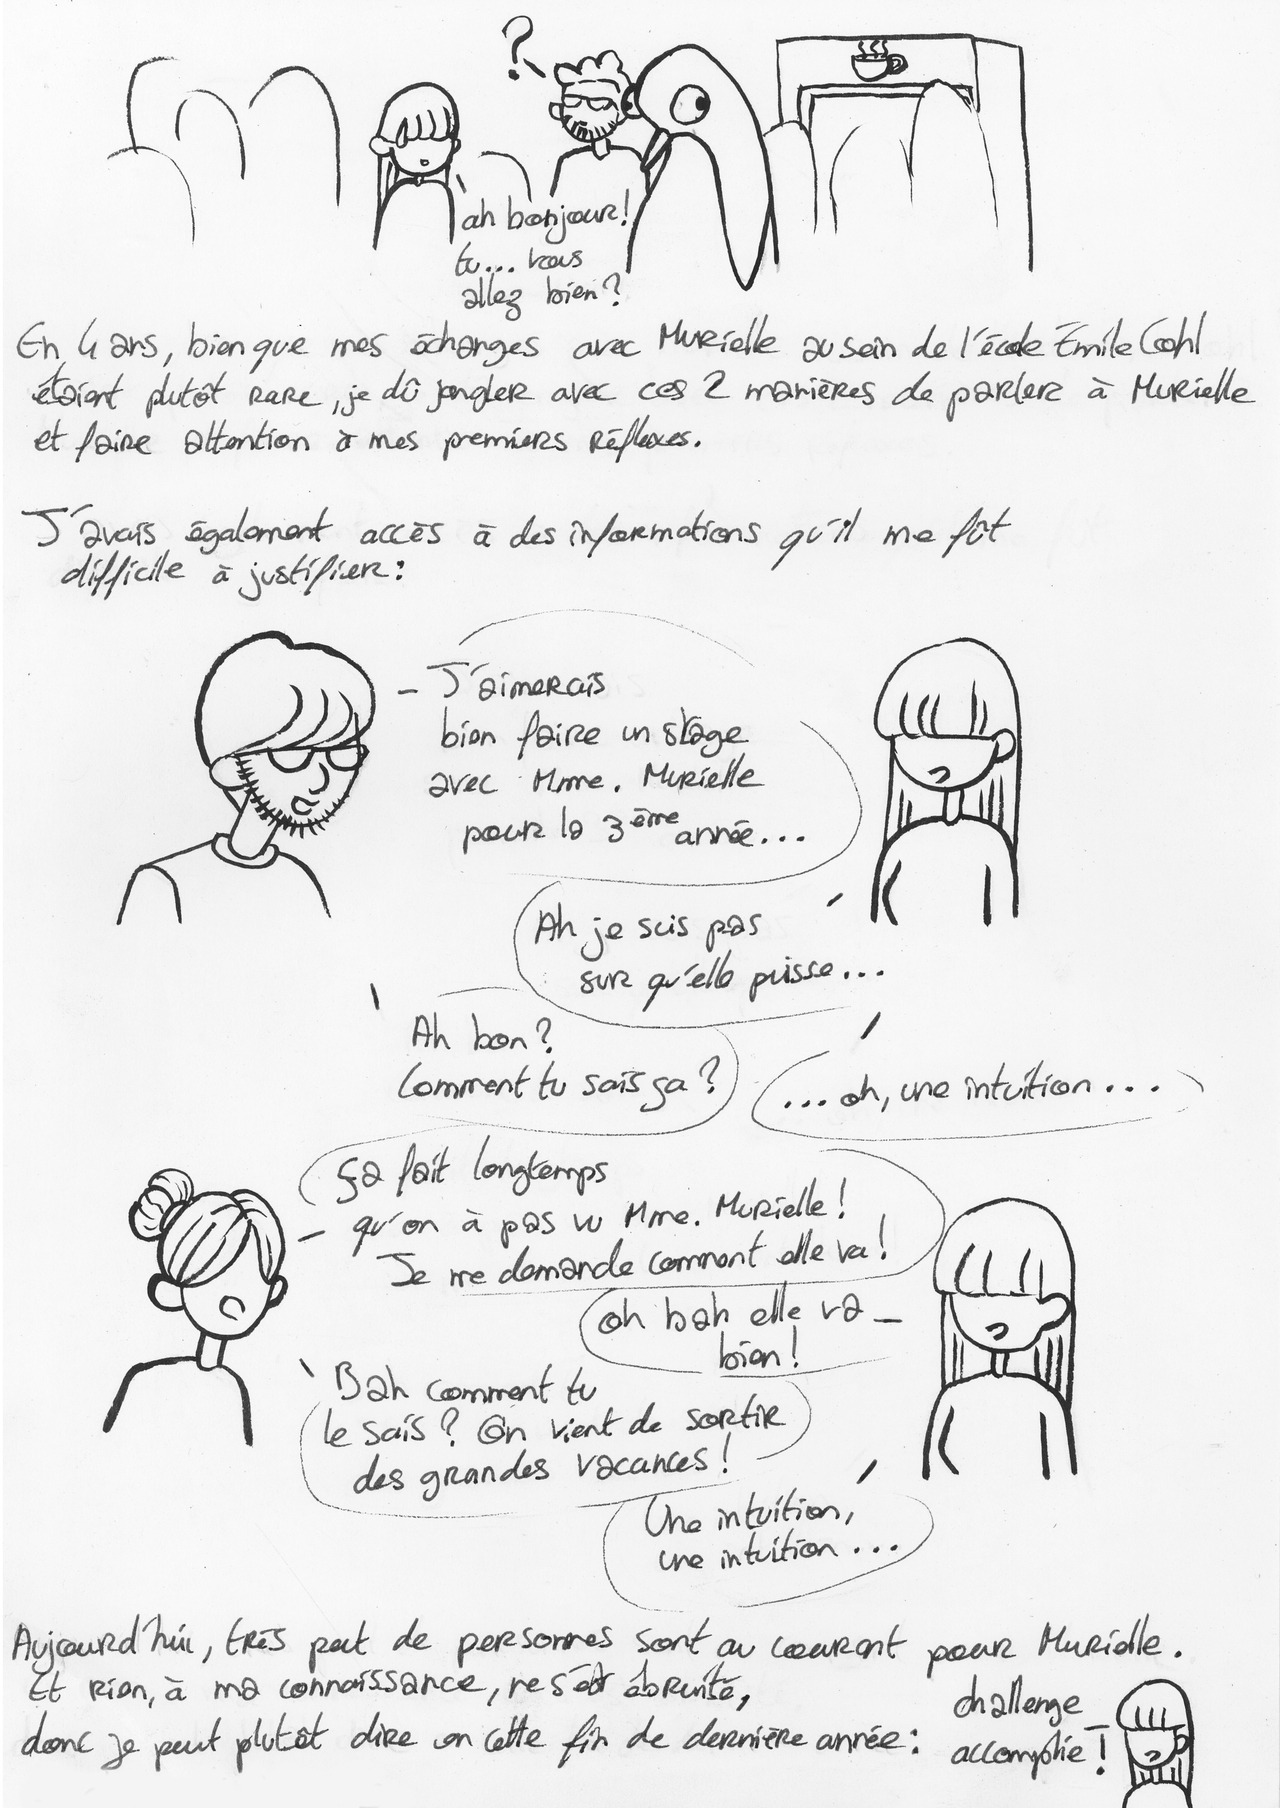 ?
ah bonjour!
tu... vous
allez bien?
En 4 ans, bien que mes échanges avec Murielle au sein de l'école Emile Cohl
étaient plutôt rare, je dû jongler avec ces 2 manières de parler à Murielle
et faire attention à mes premiers réflexes.
J'avais également accès à des informations qu'il me fût
difficile à justifier:
J'aimerais
bien faire un stage
avec Mme. Murielle
pour la 3ème année...
Ah je suis pas
sur qu'elle puisse...
Ah bon?
Comment tu sais ça?
... oh, une intuition...
ça fait longtemps
qu'on à pas vu Mme. Murielle!
Je me demande comment elle va!
oh bah elle va
bien!
Bah comment tu
le sais? On vient de sortir
des grandes vacances!
Une intuition,
une intuition...
Aujourd'hui, très peut de personnes sont au courant pour Murielle.
Et rien, à ma connaissance, ne s'est ébruité,
donc je peut plutôt dire en cette fin de dernière année:
challenge
accomplie!